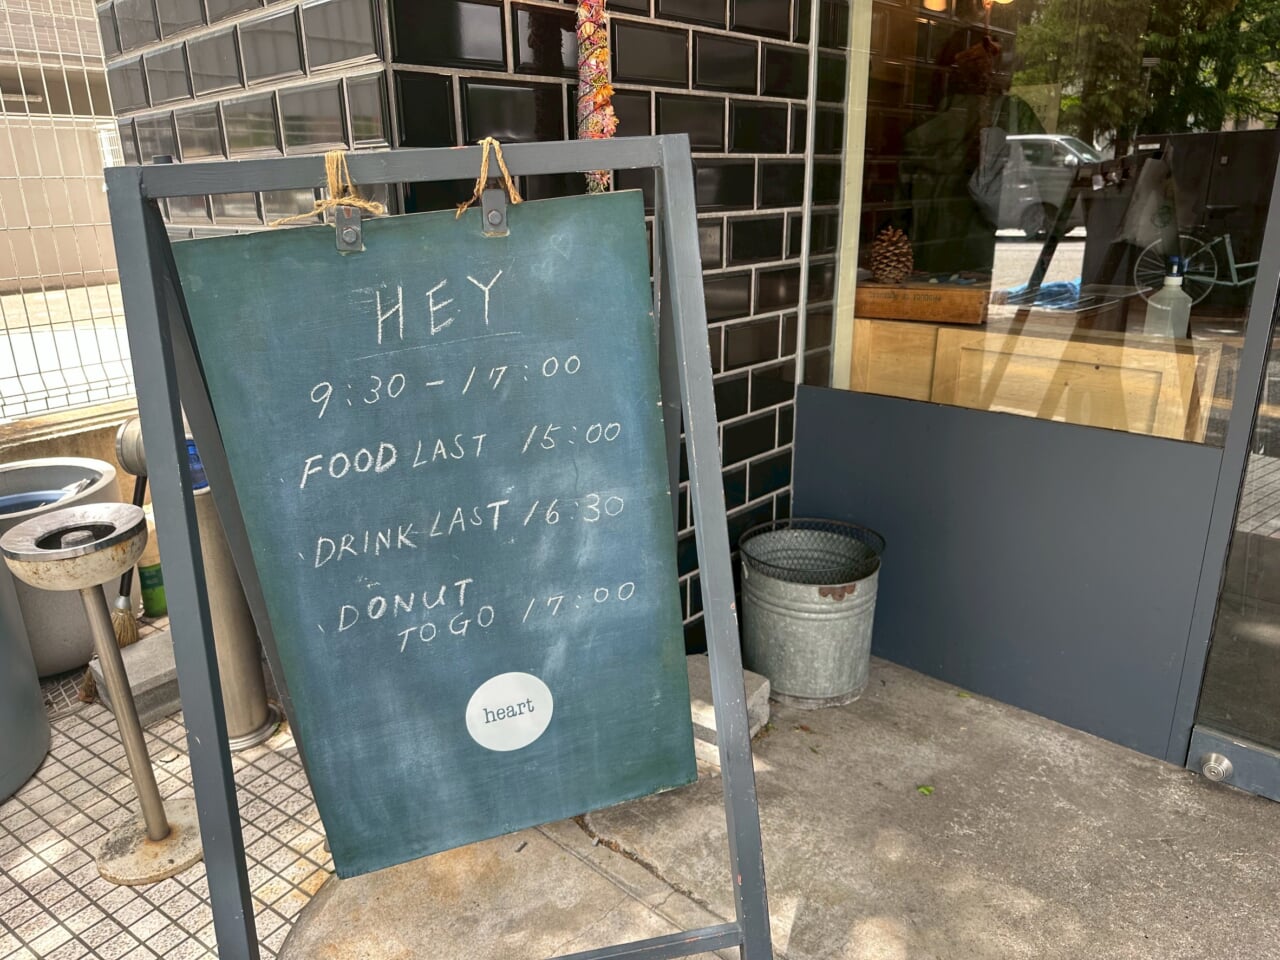 HEY
9:30 - 17:00
FOOD LAST 15:00
DRINK LAST 16:30
DONUT
TO GO 17:00
heart